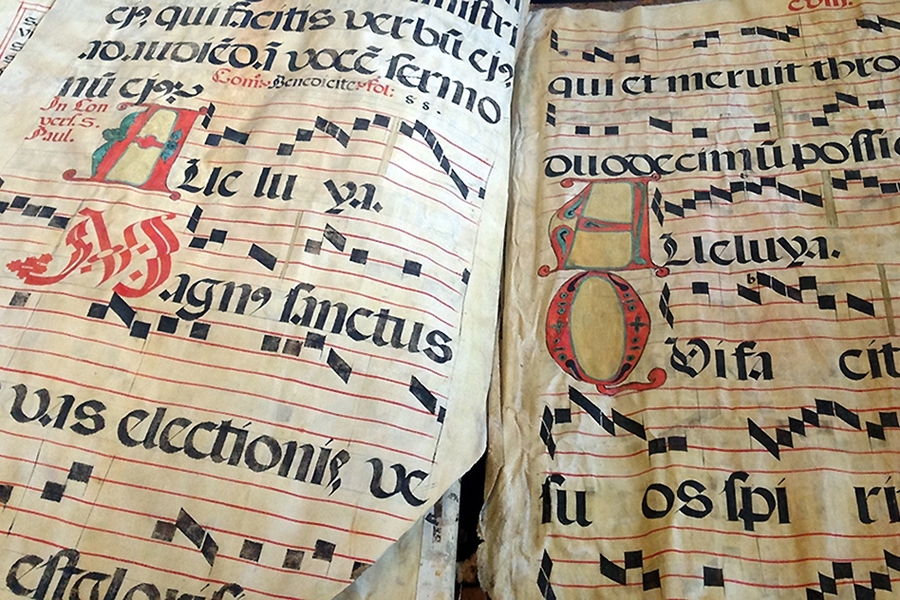 ejꝰ, qui facitis verbū ejꝰ,
ad audiēdā vocē sermo
nū ejꝰ:
Com. Benedicite fol:
In Con
vers. S.
Paul.
ALle lu ya.
Magnꝰ sanctus
vas electionis ve
est
qui et meruit thro
duodecimū possi
ALleluya.
QVi fa cit
su os spi ri